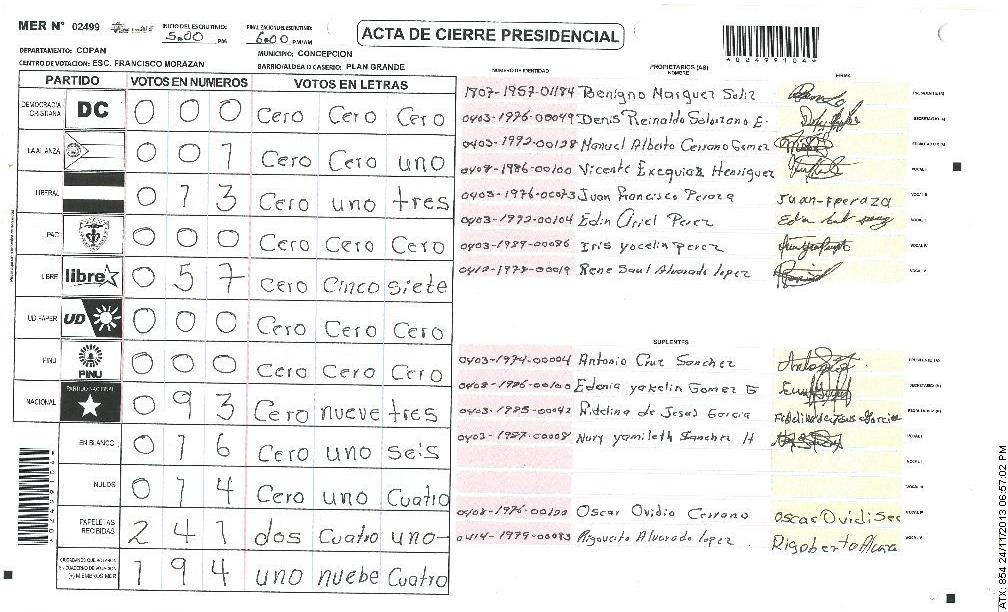 MER N° 02499
INICIO DEL ESCRUTINIO: 5:00 PM
FINALIZACION DEL ESCRUTINIO: 6:00 PM/AM
ACTA DE CIERRE PRESIDENCIAL
*02499104*
DEPARTAMENTO: COPAN
MUNICIPIO: CONCEPCION
CENTRO DE VOTACION: ESC. FRANCISCO MORAZAN
BARRIO/ALDEA O CASERIO: PLAN GRANDE
PARTIDO VOTOS EN NUMEROS VOTOS EN LETRAS
DEMOCRACIA CRISTIANA DC 0 0 0 Cero Cero Cero
LA ALIANZA 0 0 1 Cero Cero uno
LIBERAL 0 1 3 Cero uno tres
PAC 0 0 0 Cero Cero Cero
LIBRE libre 0 5 7 Cero Cinco siete
UD FAPER UD 0 0 0 Cero Cero Cero
PINU PINU 0 0 0 Cero Cero Cero
NACIONAL PARTIDO NACIONAL 0 9 3 Cero nueve tres
EN BLANCO 0 1 6 Cero uno seis
NULOS 0 1 4 Cero uno Cuatro
PAPELETAS RECIBIDAS 2 4 1 dos Cuatro uno-
CIUDADANOS QUE VOTARON EN CUADERNO DE VOTACION (+) MIEMBROS MER 1 9 4 uno nuebe Cuatro
NUMERO DE IDENTIDAD PROPIETARIOS (AS) NOMBRE FIRMA
1807-1957-01184 Benigno Marquez Soliz PRESIDENTE (A)
0403-1976-00049 Denis Reinaldo Solorzano E. SECRETARIO (A)
0403-1992-00128 Manuel Alberto Cerrano Gomez
0408-1986-00100 Vicente Exequias Henriquez VOCAL I
0403-1976-00073 Juan Francisco Peraza Juan-F peraza VOCAL II
0403-1972-00104 Edin Ariel Perez
0403-1989-00086 Iris yocelin perez VOCAL IV
0412-1978-00019 Rene Saul Alvarado lopez VOCAL V
SUPLENTES
0403-1974-00004 Antonio Cruz Sanchez PRESIDENTE (A)
0408-1986-00100 Edenia yakelin Gomez G SECRETARIO (A)
0403-1985-00042 Fidelina de Jesus Garcia Fidelina de Jesus Garcia
0403-1987-00008 Nury yamileth Sanchez H VOCAL I
VOCAL II
VOCAL III
Oscar Ovidio Cerrano VOCAL IV
0414-1979-00083 Rigoverto Alvarado lopez. VOCAL V
ATX: 854 24/11/2013 06:57:02 PM